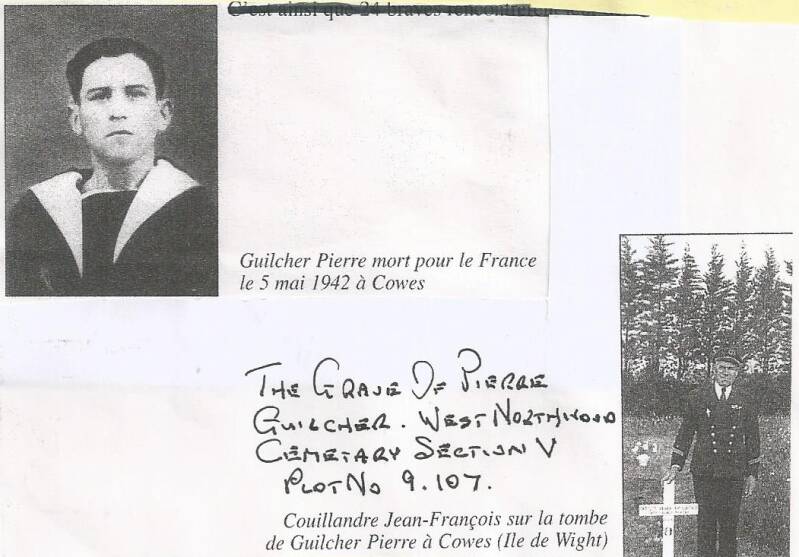 C'est ainsi que 24 braves
Guilcher Pierre mort pour le France
le 5 mai 1942 à Cowes
THE GRAVE OF PIERRE
GUILCHER. WEST NORTHWOOD
CEMETARY SECTION V
PLOT NO 9.107.
Couillandre Jean-François sur la tombe
de Guilcher Pierre à Cowes (Ile de Wight)